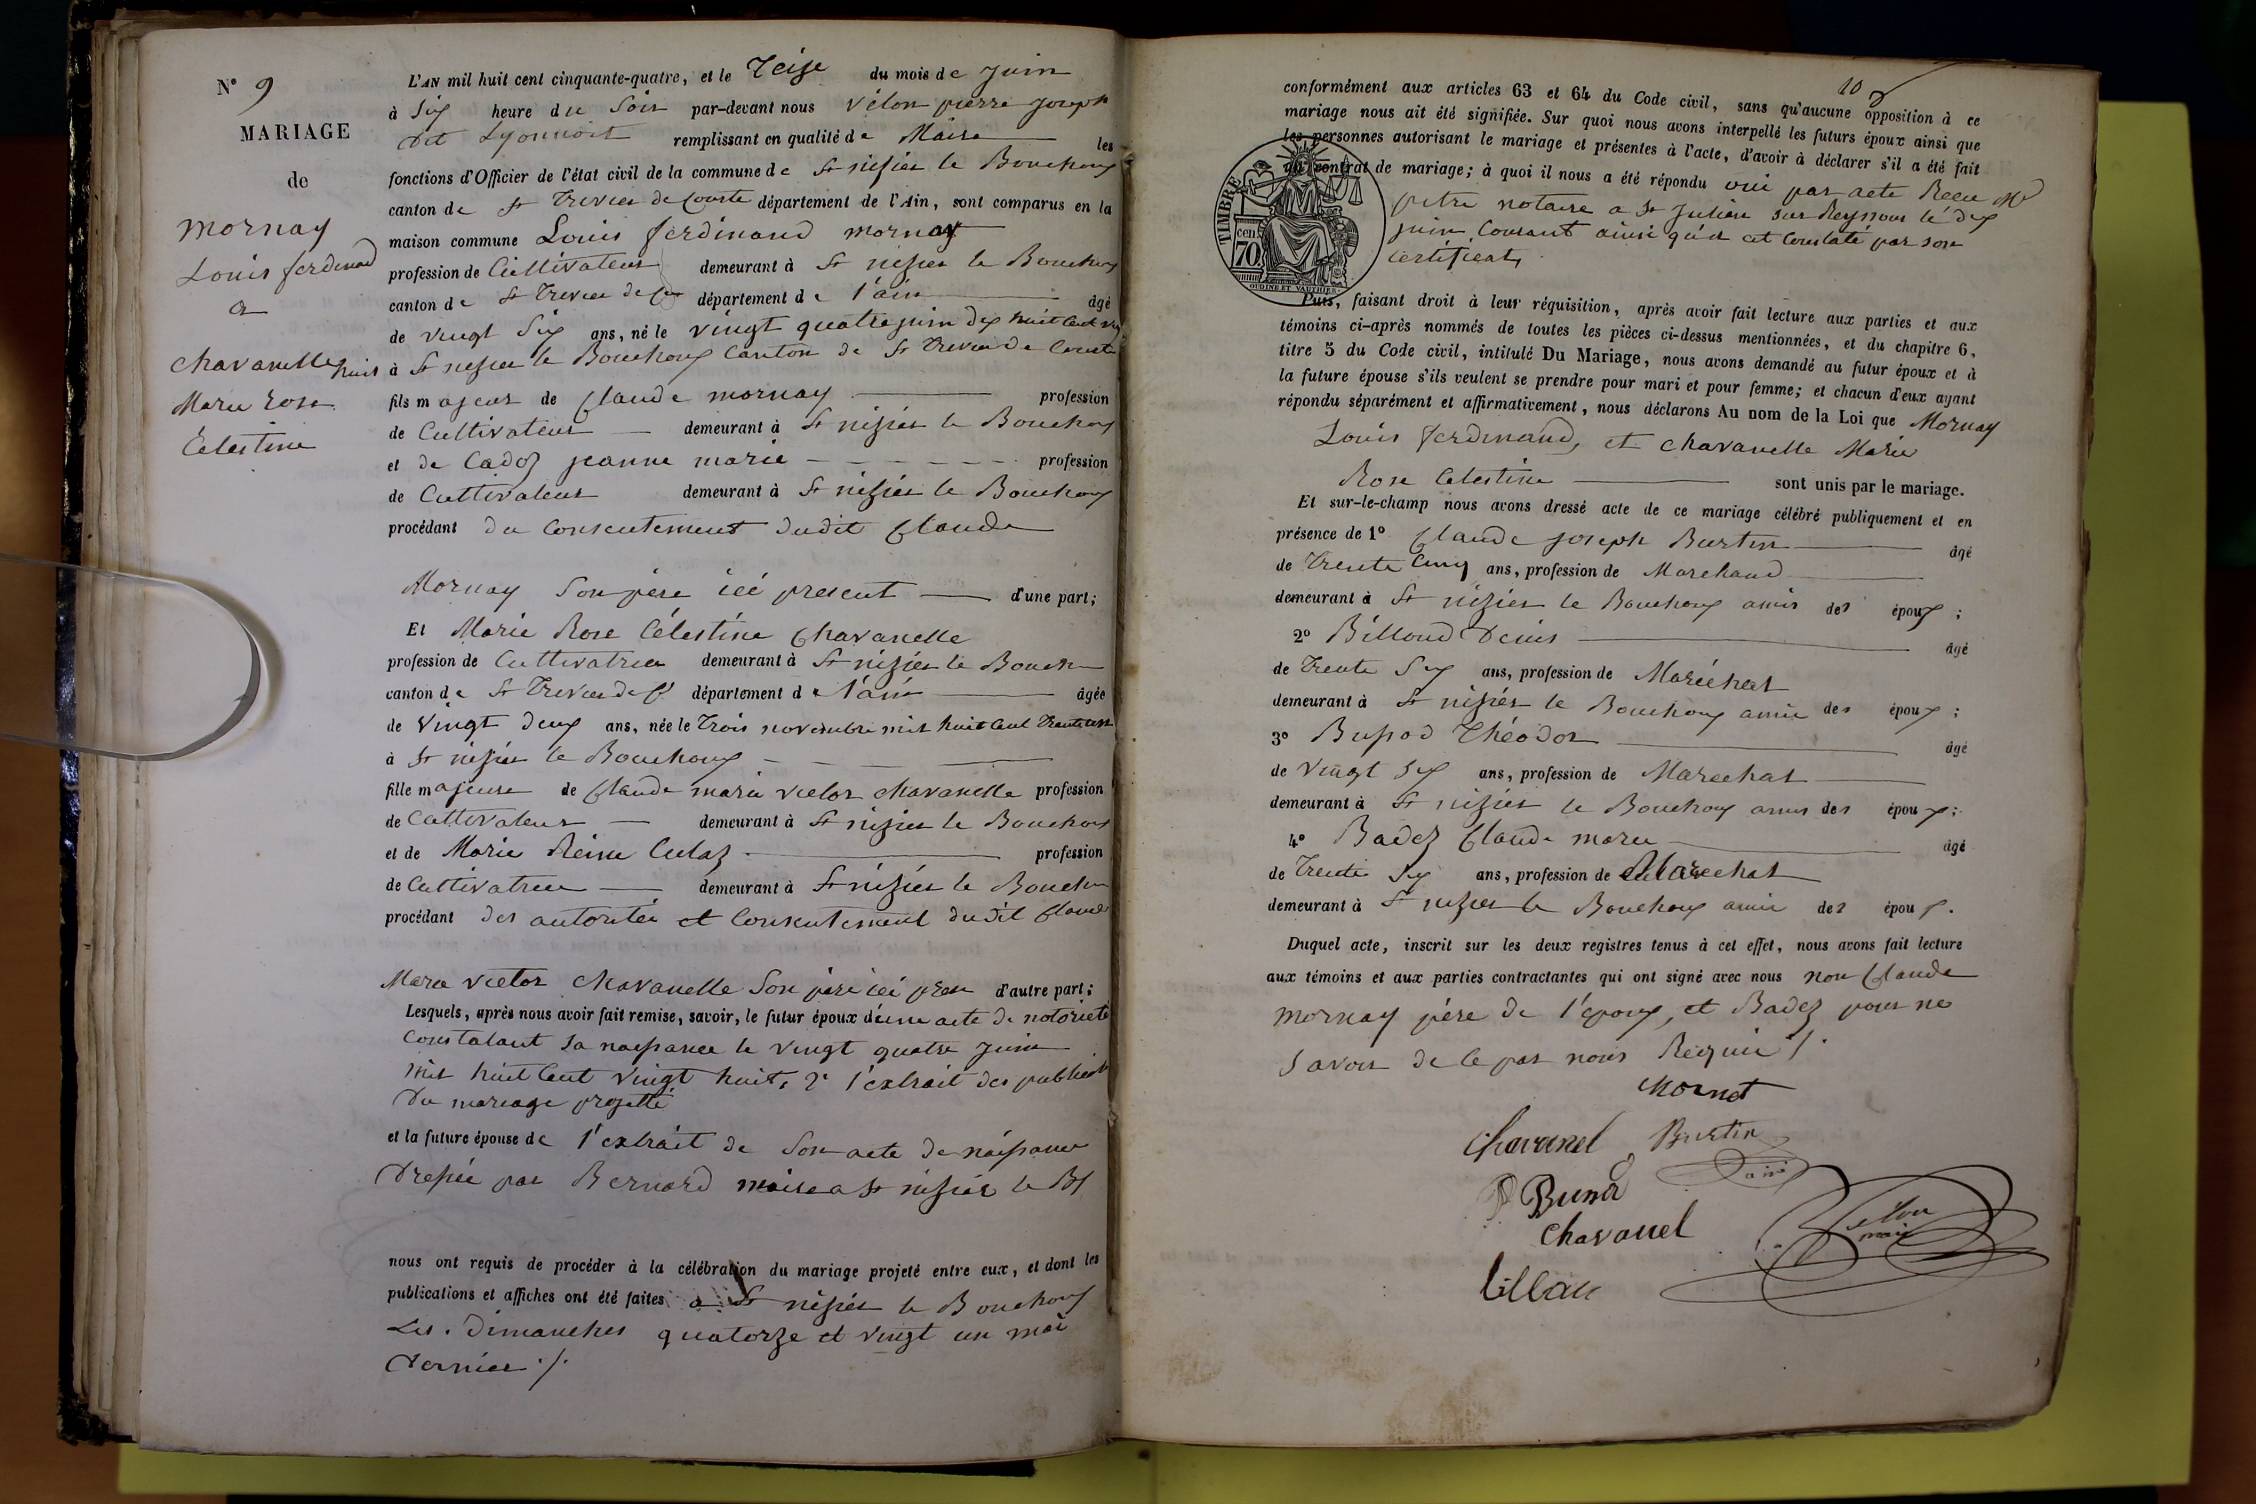 N° 9
MARIAGE
de
Mornay
Louis ferdinand
a
Chavanelle
Marie Rose
Célestine
L'AN mil huit cent cinquante-quatre, et le Treize du mois de Juin
à Six heure du Soir par-devant nous Vélon pierre joseph
dit Lyonnois remplissant en qualité de Maire les
fonctions d'Officier de l'état civil de la commune de St nizier le Bouchoux
canton de St Trivier de Courte département de l'Ain, sont comparus en la
maison commune Louis ferdinand mornay
profession de Cultivateur demeurant à St nizier le Bouchoux
canton de St Trivier de Cou département de l'ain âgé
de vingt Six ans, né le vingt quatre juin dix huit Cent vingt
huit à St nizier le Bouchoux Canton de St Trivier de Courte
fils majeur de Claude mornay profession
de Cultivateur demeurant à St nizier le Bouchoux
et de Cadoz jeanne marie profession
de Cultivateur demeurant à St nizier le Bouchoux
procédant du Consentement dudit Claude
Mornay Son père icé présent d'une part;
Et Marie Rose Célestine Chavanelle
profession de Cultivatrice demeurant à St nizier le Bouch
canton de St Trivier de C département de l'ain âgée
de vingt deux ans, née le Trois novembre mil huit Cent Trente un
à St nizier le Bouchoux
fille majeure de Claude marie victor chavanelle profession
de Cultivateur demeurant à St nizier le Bouchoux
et de Marie Reine Culaz profession
de Cultivatrice demeurant à St nizier le Bouch
procédant des autorités et Consentement dudit Claude
Marie victor Chavanelle Son père icé prese d'autre part;
Lesquels, après nous avoir fait remise, savoir, le futur époux d'eune acte de notoriété
Constatant Sa naissance le vingt quatre Juin
mil huit Cent vingt huit, 2° l'extrait des publicat
du mariage projetté
et la future épouse de l'extrait de Son acte de naissance
dressée par Bernard maire a St nizier le B
nous ont requis de procéder à la célébration du mariage projeté entre eux, et dont les
publications et affiches ont été faites a St nizier le Bouchoux
Les dimanches quatorze et vingt un mai
dernier ./.
10
conformément aux articles 63 et 64 du Code civil, sans qu'aucune opposition à ce
mariage nous ait été signifiée. Sur quoi nous avons interpellé les futurs époux ainsi que
les personnes autorisant le mariage et présentes à l'acte, d'avoir à déclarer s'il a été fait
un contrat de mariage; à quoi il nous a été répondu oui par acte Recu Me
notaire a St Julien sur Reyssouze le dix
juin Courant ainsi qu'il est Constaté par son
Certificat,
TIMBRE
cen.
70
OUDINÉ ET VAUTHIER
Puis, faisant droit à leur réquisition, après avoir fait lecture aux parties et aux
témoins ci-après nommés de toutes les pièces ci-dessus mentionnées, et du chapitre 6,
titre 5 du Code civil, intitulé Du Mariage, nous avons demandé au futur époux et à
la future épouse s'ils veulent se prendre pour mari et pour femme; et chacun d'eux ayant
répondu séparément et affirmativement, nous déclarons Au nom de la Loi que Mornay
Louis ferdinand, et Chavanelle Marie
Rose Célestine sont unis par le mariage.
Et sur-le-champ nous avons dressé acte de ce mariage célébré publiquement et en
présence de 1° Claude joseph Burtin âgé
de Trente Cinq ans, profession de Marchand
demeurant à St nizier le Bouchoux amis des époux;
2° Billoud Denis âgé
de Trente Six ans, profession de Maréchal
demeurant à St nizier le Bouchoux amis des époux;
3° Théodor âgé
de vingt Six ans, profession de Maréchal
demeurant à St nizier le Bouchoux amis des époux;
4° Badez Claude marie âgé
de Trente Six ans, profession de Maréchal
demeurant à St nizier le Bouchoux amis des époux.
Duquel acte, inscrit sur les deux registres tenus à cet effet, nous avons fait lecture
aux témoins et aux parties contractantes qui ont signé avec nous non Claude
mornay père de l'époux, et Badez pour ne
Savoir de ce par nous Requis ./.
Mornet
Chavanel Burtin
ainé
Chavanel
Vélon
maire